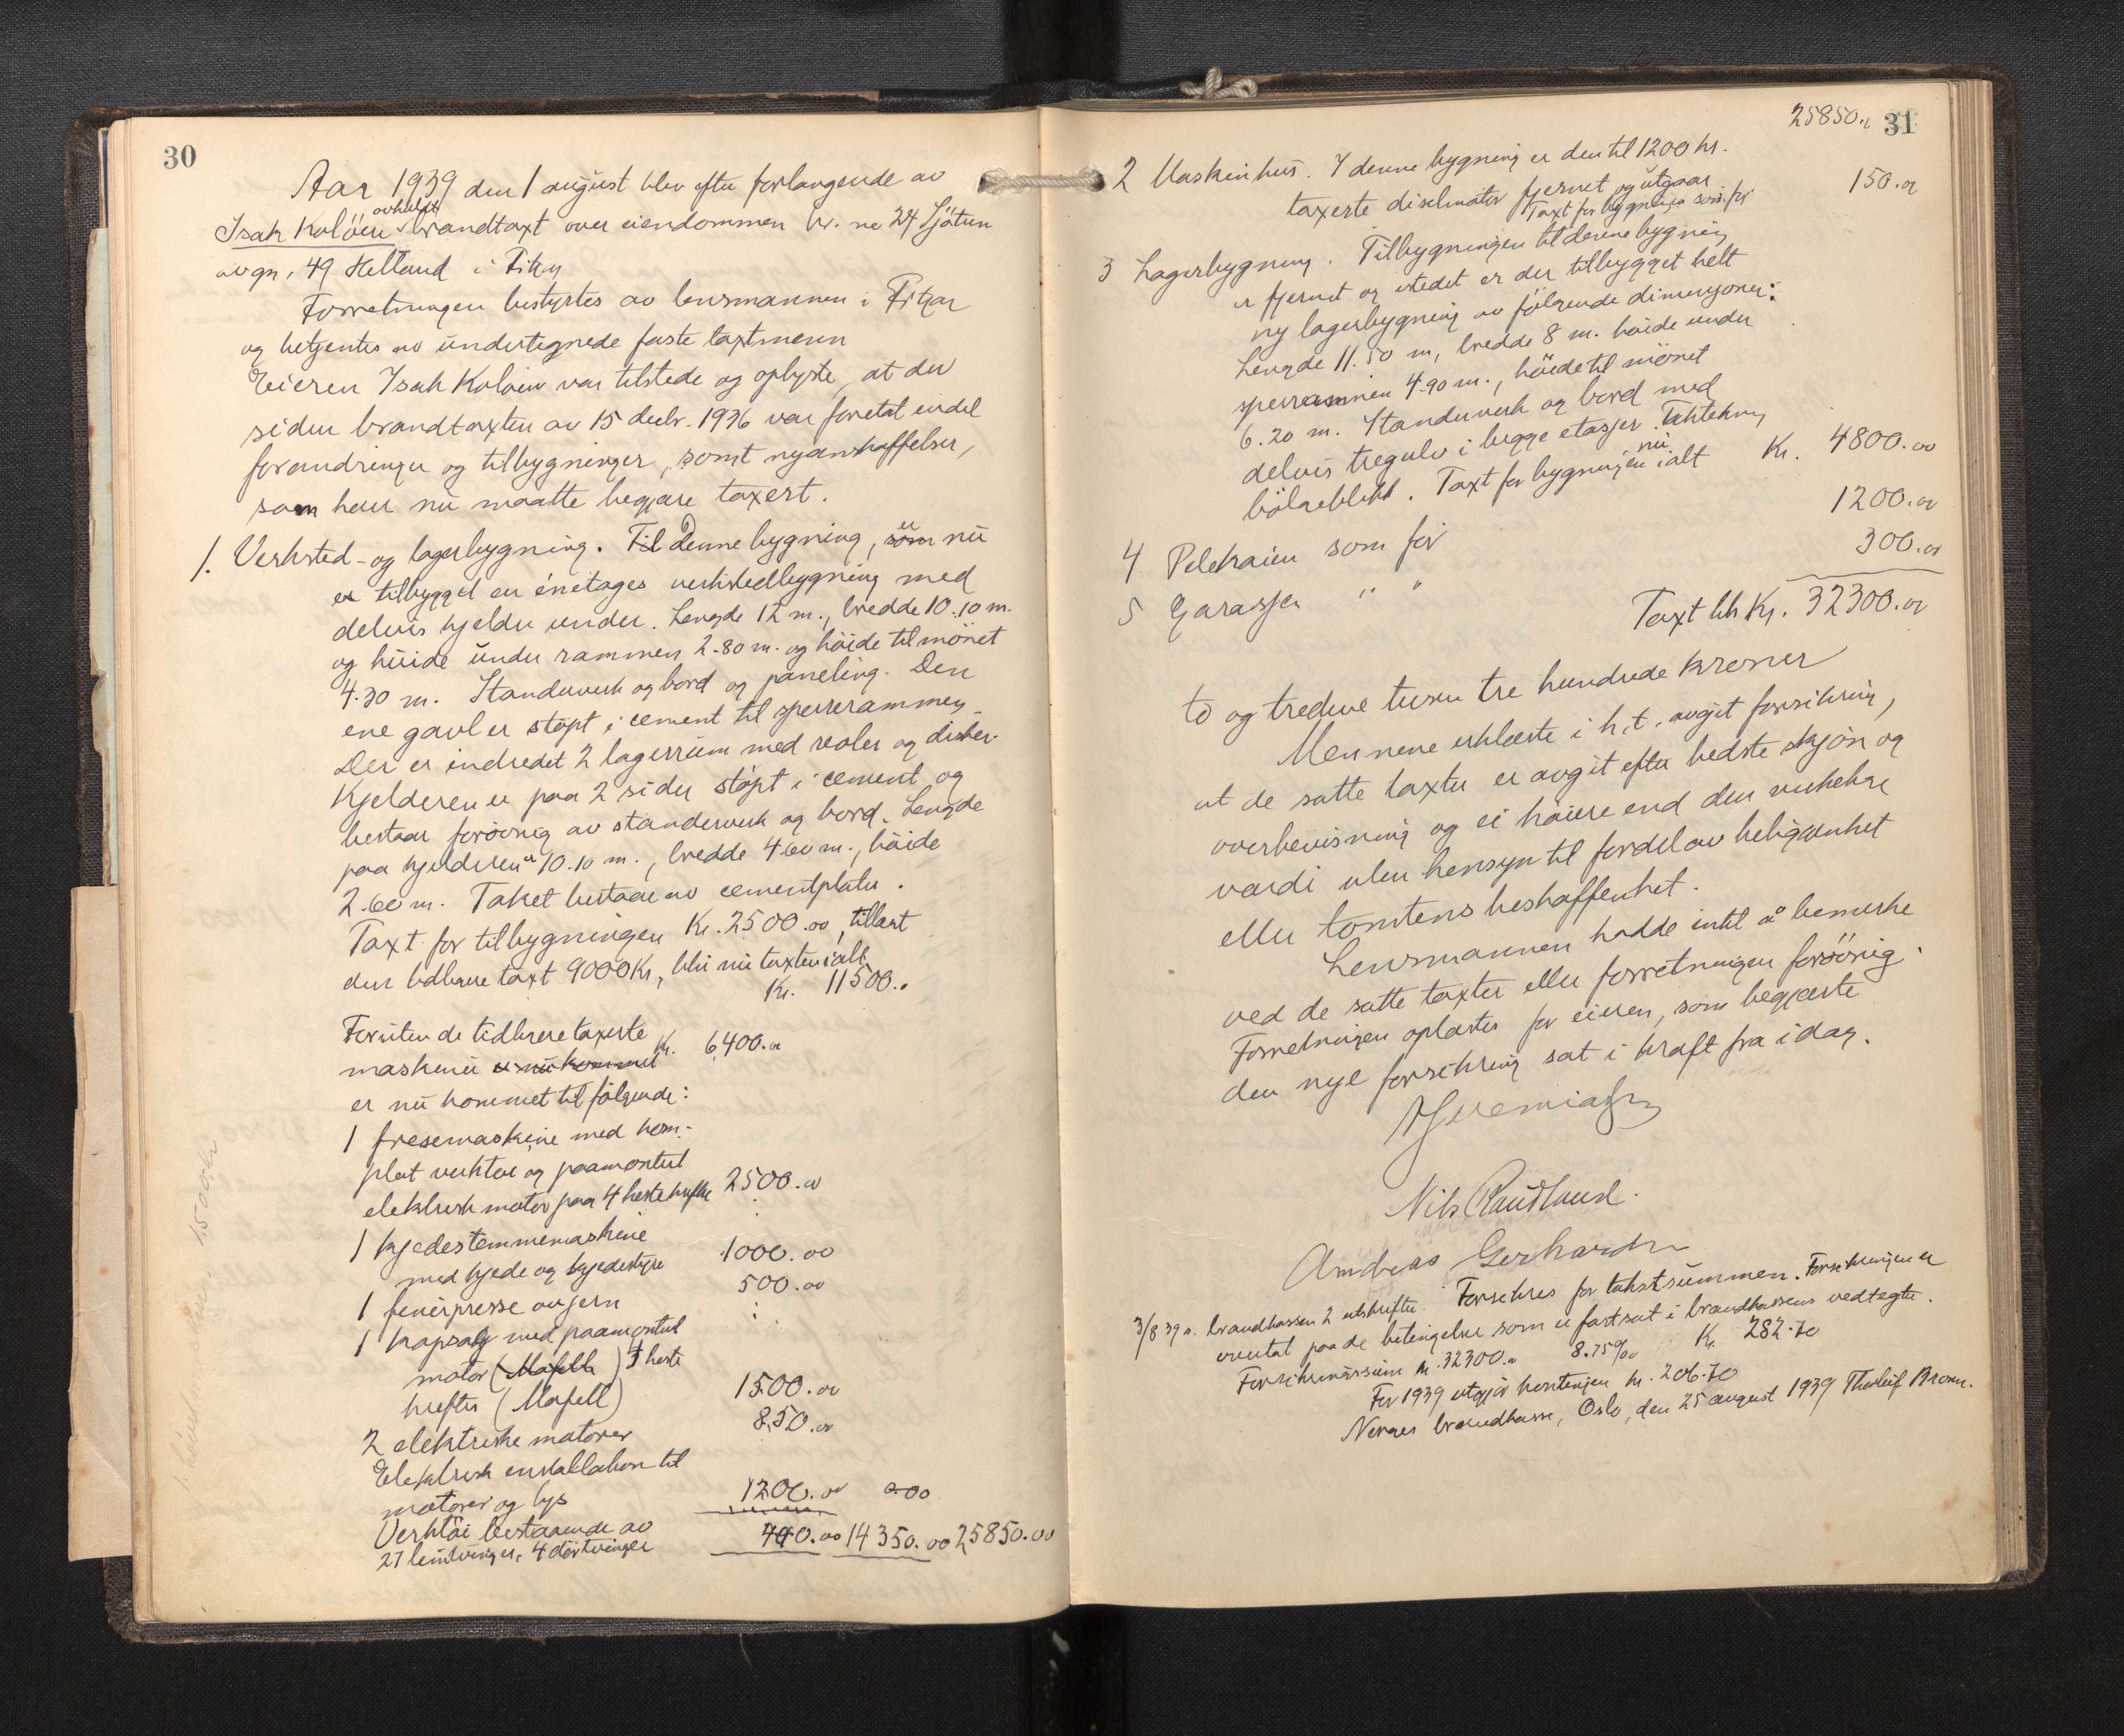 30
Aar 1939 den 1 august blev efter forlangende av
avholdt
Isak Koløen brandtaxt over eiendommen br. no 24 Sjötun
av gn. 49 Helland i Fitjar
Forretningen bestyrtes av lensmannen i Fitjar
og betjentes av undertegnede faste taxtmenn
Eieren Isak Koløen var tilstede og oplyste, at der
siden brandtaxten av 15 decbr. 1936 var foretat endel
forandringer og tilbygninger, samt nyanskaffelser,
som han nu maatte begjære taxert.
1. Verksted- og lagerbygning. Til Denne bygning, som er nu
er tilbygget en énetages verkstedbygning med
delvis kjelder under. Lengde 12 m., bredde 10.10 m.
og høide under rammen 2.80 m. og høide til mønet
4.30 m. Standerverk og bord og paneling. Den
ene gavl er støpt i cement til sperrerammen.
Der er indredet 2 lagerrum med reoler og disker.
Kjelderen er paa 2 sider støpt i cement og
bestaar forøvrig av standerverk og bord. Lengde
paa kjelderen er 10.10 m., bredde 4.60 m., høide
2.60 m. Taket bestaar av cementplater.
Taxt for tilbygningen Kr. 2500.00, tillagt
den tidligere taxt 9000 Kr, blir nu taxten ialt
Kr. 11500..
Foruten de tidligere taxerte
maskiner er nu kommet Kr. 6400.00
er nu kommet til følgende:
1 fresemaskine med kom-
plet verktøi og paamontert
elektrisk motor paa 4 hestekrefter 2500.00
1 kjedestemmemaskine
med kjede og kjedestyre 1000.00
1 finérpresse av jern 500.00
1 kapsag med paamontert
motor (Mafell) 4 heste
krefter (Mafell) 1500.00
2 elektriske motorer 850.00
Elektrisk installation til
motorer og lys 1200.00
Verktøi bestaaende av
27 limtvinger, 4 dørtvinger 400.00 14350.00 25850.00
31
25850.00
2 Maskinhus. I denne bygning er den til 1200 kr.
taxerte diselmotor fjernet og utgaar
Taxt for bygningen som før 150.00
3 Lagerbygning. Tilbygningen til denne bygning
er fjernet og istedet er der tilbygget helt
ny lagerbygning av følgende dimensjoner:
Lengde 11.50 m, bredde 8 m. høide under
sperrammen 4.90 m., høide til mønet
6.20 m. Standerverk og bord med
delvis tregulv i begge etasjer. Taktekning
bølgeblikk. Taxt for bygningen nu ialt Kr. 4800.00
4 Pelekaien som før 1200.00
5 Garasjen " " 300.00
Taxt blir Kr. 32300.00
to og tredeve tusen tre hundrede kroner
Mennene erklærte i h.t. avgit forsikring,
at de satte taxter er avgit efter bedste skjøn og
overbevisning og ei høiere end den virkelige
værdi uten hensyn til fordel av beliggenhet
eller tomtens beskaffenhet.
Lensmannen hadde intet å bemerke
ved de satte taxter eller forretningen forøvrig.
Forretningen oplæstes for eieren, som begjærte
den nye forsikring sat i kraft fra idag.
Nils Raudland.
Andreas Gerhardsen
3/8 39 s. brandkassen 2 utskrifter. Forsikres for takstsummen. Forsikringen er
overtat paa de betingelser som er fastsat i brandkassens vedtægter.
Forsikringssum kr. 32300.00 8.75 ‰ Kr. 282.70
For 1939 utgjør kontingen kr. 206.70
Norges brandkasse, Oslo, den 25 august 1939 Thorleif Broun.